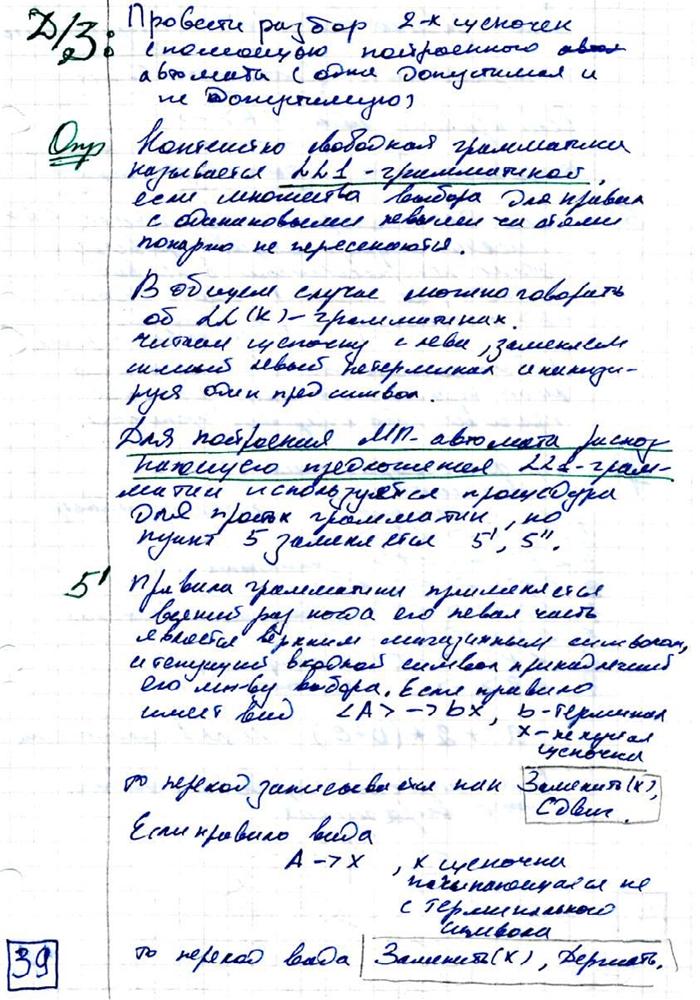 Д/З: Провести разбор 2-х цепочек
с помощью построенного
автомата (одна допустимая и
не допустимую)
Опр Контекстно свободная грамматика
называется LL1-грамматикой,
если множества выбора для правил
с одинаковыми левыми частями
попарно не пересекаются.
В общем случае можно говорить
об LL(K)-грамматиках.
Читаем цепочку слева, заменяем
самый левый нетерминал
один предсимвол.
Для построения МП-автомата распоз
нающую предложения LL1-грам-
матик используется процедура
для простых грамматик, но
пункт 5 заменяется 5', 5".
5' Правила грамматики применяется
всякий раз когда его левая часть
является верхним магазинным символом,
и текущий входной символ принадлежит
его мн-ву выбора. Если правило
имеет вид <A> -> bx, b-терминал
x - не пустая
цепочка
то переход записывается как Заменить(x),
Сдвиг.
Если правило вида
A -> x , x цепочка
начинающаяся не
с терминального
символа
39 то переход вида Заменить(x), Держать.